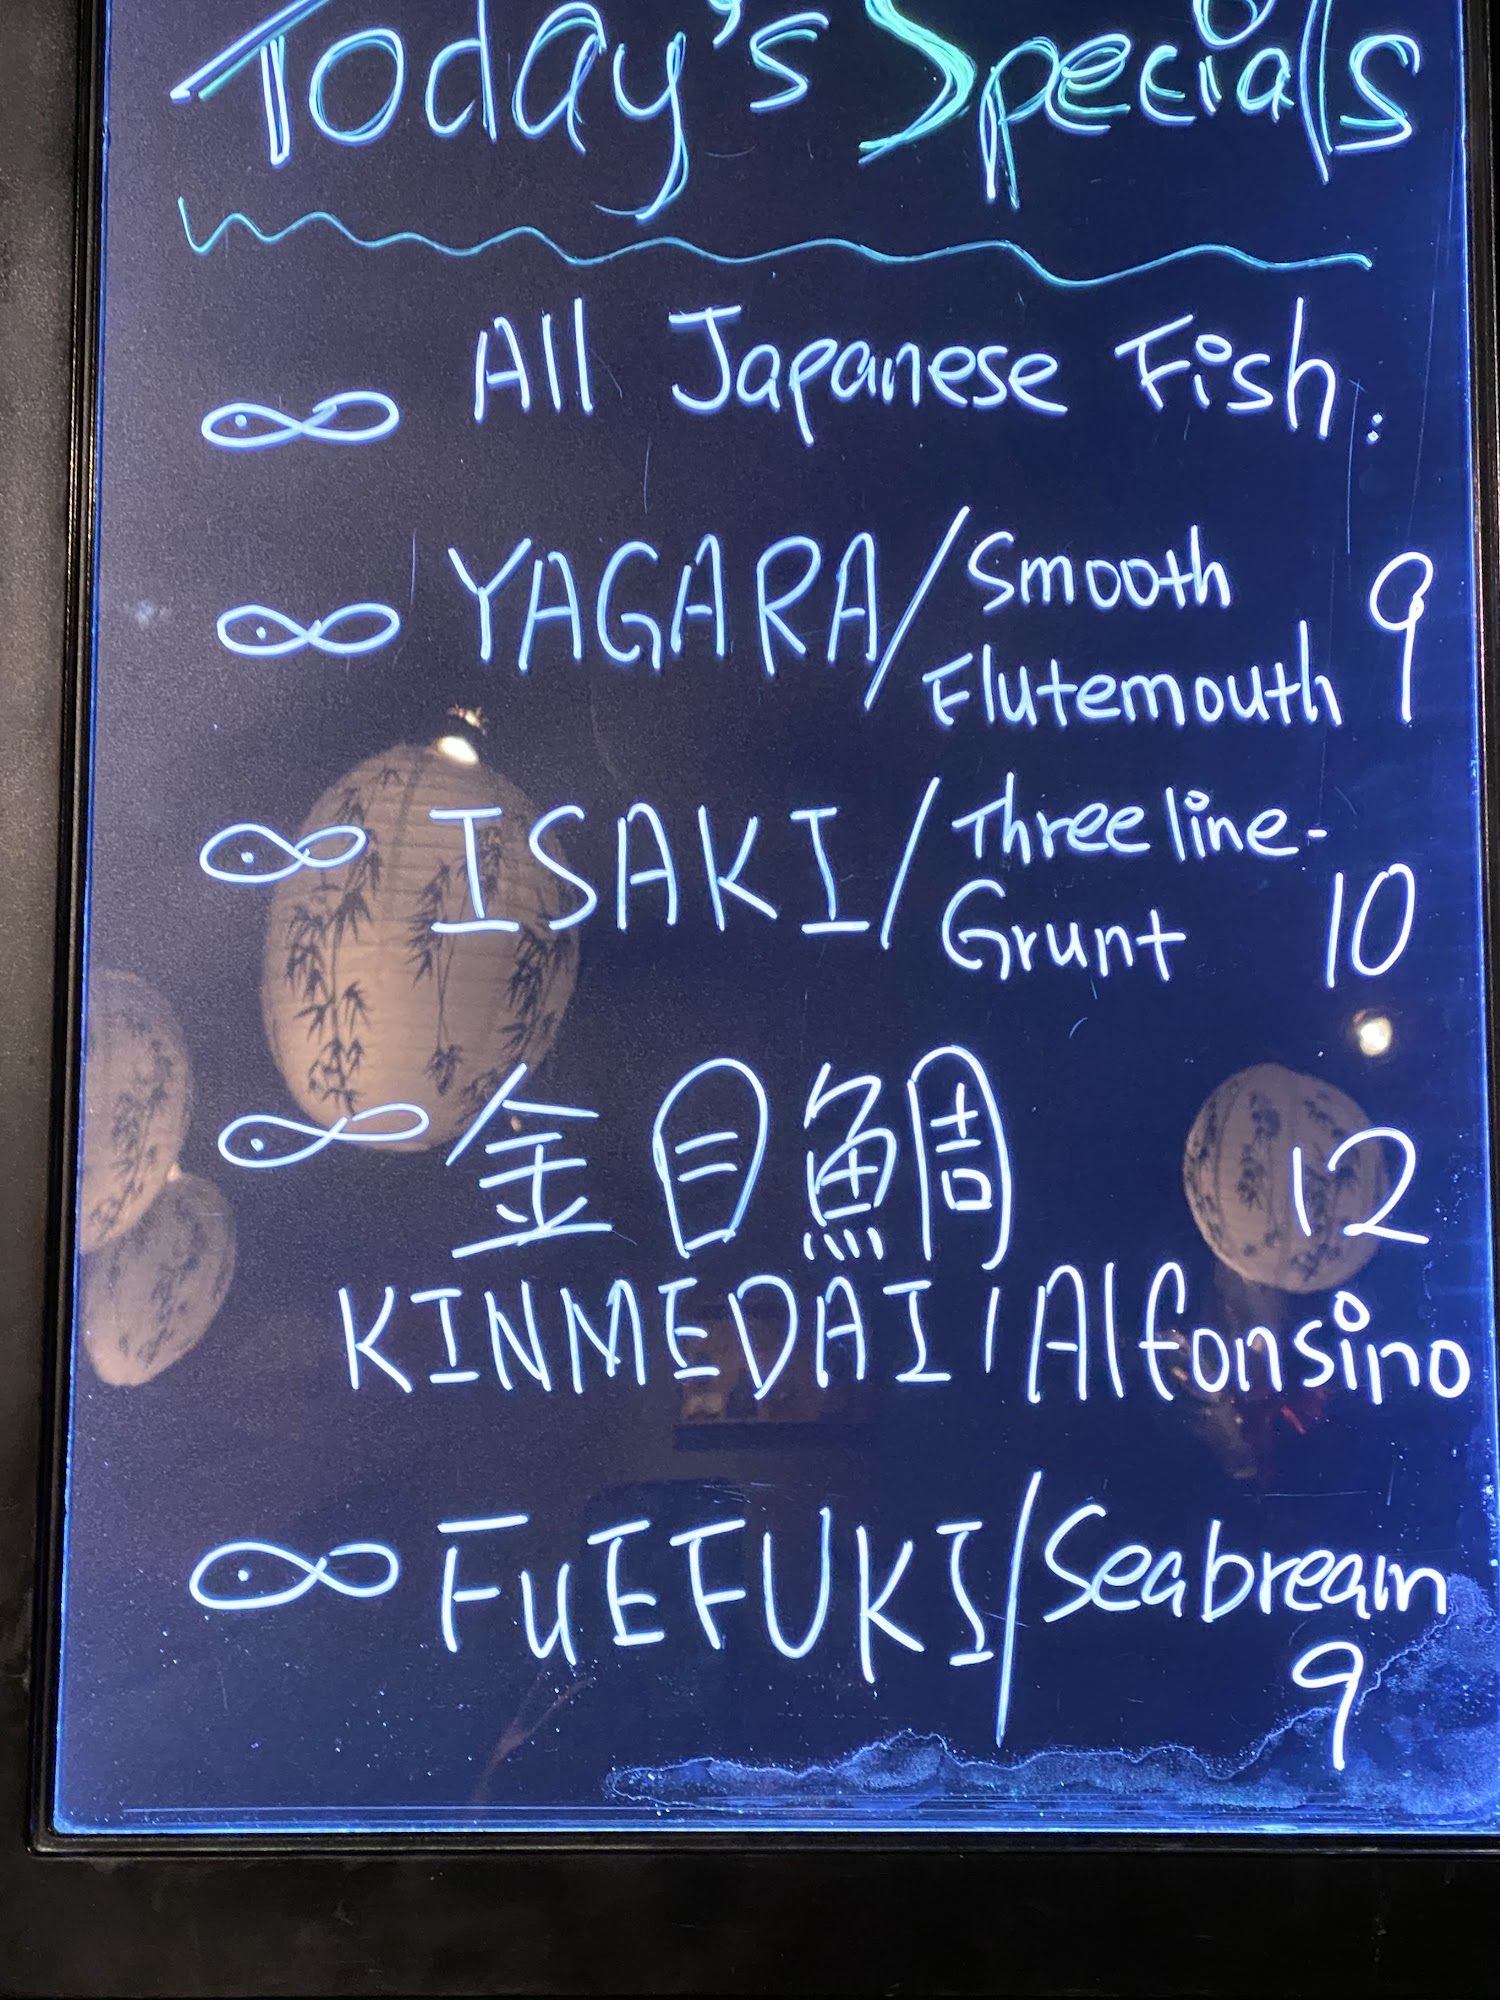 Today's Specials
All Japanese Fish:
YAGARA/Smooth Flutemouth 9
ISAKI/Three line-Grunt 10
金目鯛 12
KINMEDAI/Alfonsino
FuEFUKI/Seabream
9